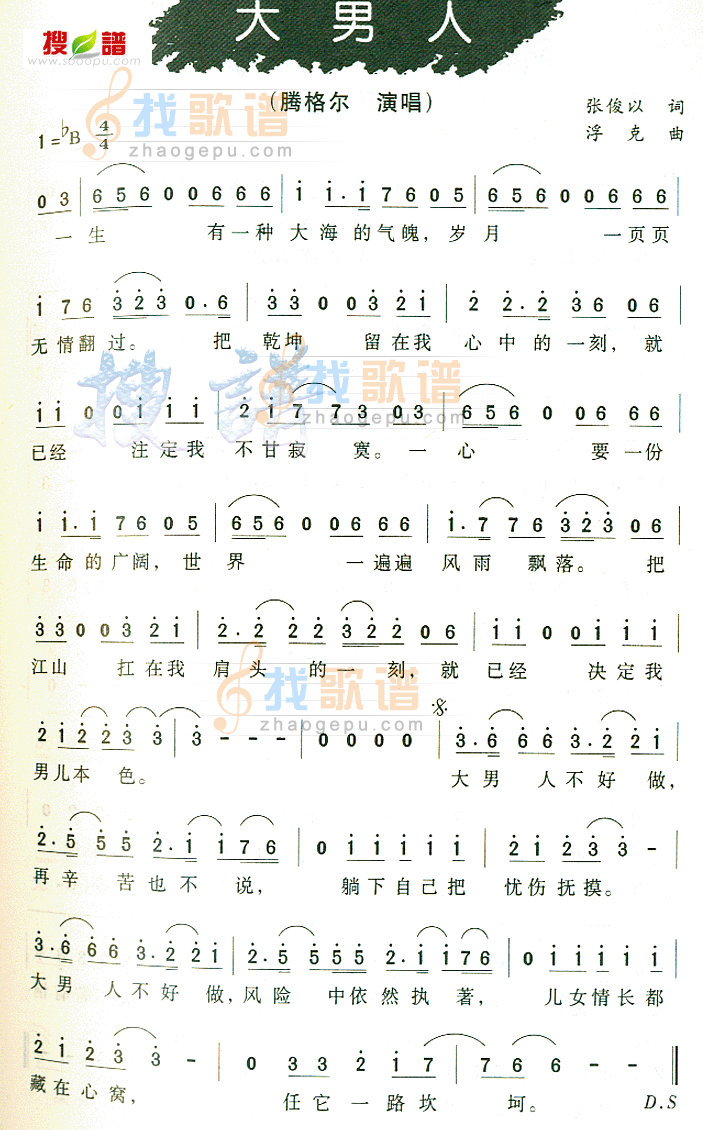 大 男 人
搜谱
www.sooopu.com
(腾格尔 演唱)
张俊以 词
浮 克 曲
1=♭B 4/4
找歌谱
zhaogepu.com
0 3 | 6 5 6 0 0 6 6 6 | i i. i 7 6 0 5 | 6 5 6 0 0 6 6 6 |
一 生 有 一 种 大 海 的 气 魄, 岁 月 一 页 页
i 7 6 3 2 3 0. 6 | 3 3 0 0 3 2 i | 2 2. 2 3 6 0 6 |
无 情 翻 过。 把 乾 坤 留 在 我 心 中 的 一 刻, 就
i i 0 0 i i i | 2 i 7 7 3 0 3 | 6 5 6 0 0 6 6 6 |
已 经 注 定 我 不 甘 寂 寞。 一 心 要 一 份
找歌谱
zhaogepu.com
搜谱
i i. i 7 6 0 5 | 6 5 6 0 0 6 6 6 | i. 7 7 6 3 2 3 0 6 |
生 命 的 广 阔, 世 界 一 遍 遍 风 雨 飘 落。 把
3 3 0 0 3 2 i | 2. 2 2 2 3 2 2 0 6 | i i 0 0 i i i |
江 山 扛 在 我 肩 头 的 一 刻, 就 已 经 决 定 我
找歌谱
zhaogepu.com
2 i 2 2 3 3 | 3 - - - | 0 0 0 0 | 3. 6 6 6 3. 2 2 i |
男 儿 本 色。 大 男 人 不 好 做,
2. 5 5 5 2. i i 7 6 | 0 i i i i i | 2 i 2 3 3 - |
再 辛 苦 也 不 说, 躺 下 自 己 把 忧 伤 抚 摸。
3. 6 6 6 3. 2 2 i | 2. 5 5 5 5 2. i i 7 6 | 0 i i i i i |
大 男 人 不 好 做, 风 险 中 依 然 执 著, 儿 女 情 长 都
2 i 2 3 3 - | 0 3 3 2 i 7 | 7 6 6 - - ||
藏 在 心 窝, 任 它 一 路 坎 坷。 D.S